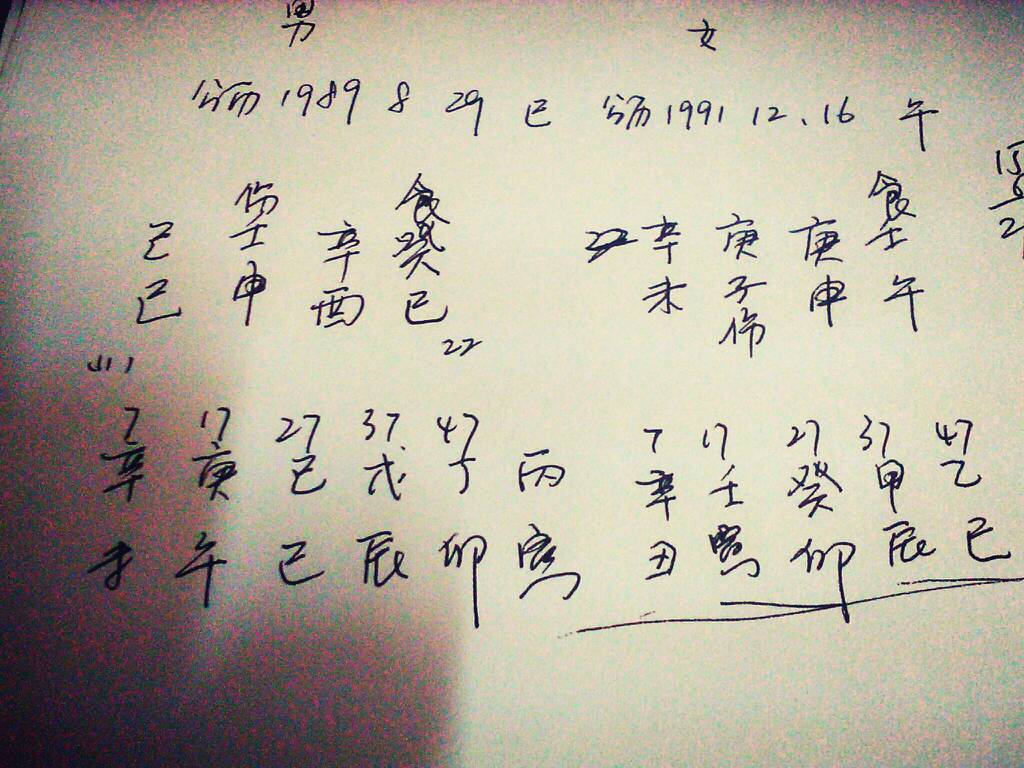 男 女
公历 1989 8 29 巳 公历 1991 12.16 午
伤 食 食
己 壬 辛 癸 辛 庚 庚 壬
巳 申 酉 巳 未 子 申 午
伤
22
7 17 27 37 47 7 17 27 37 47
辛 庚 己 戊 丁 丙 辛 壬 癸 甲 乙
未 午 巳 辰 卯 寅 丑 寅 卯 辰 巳